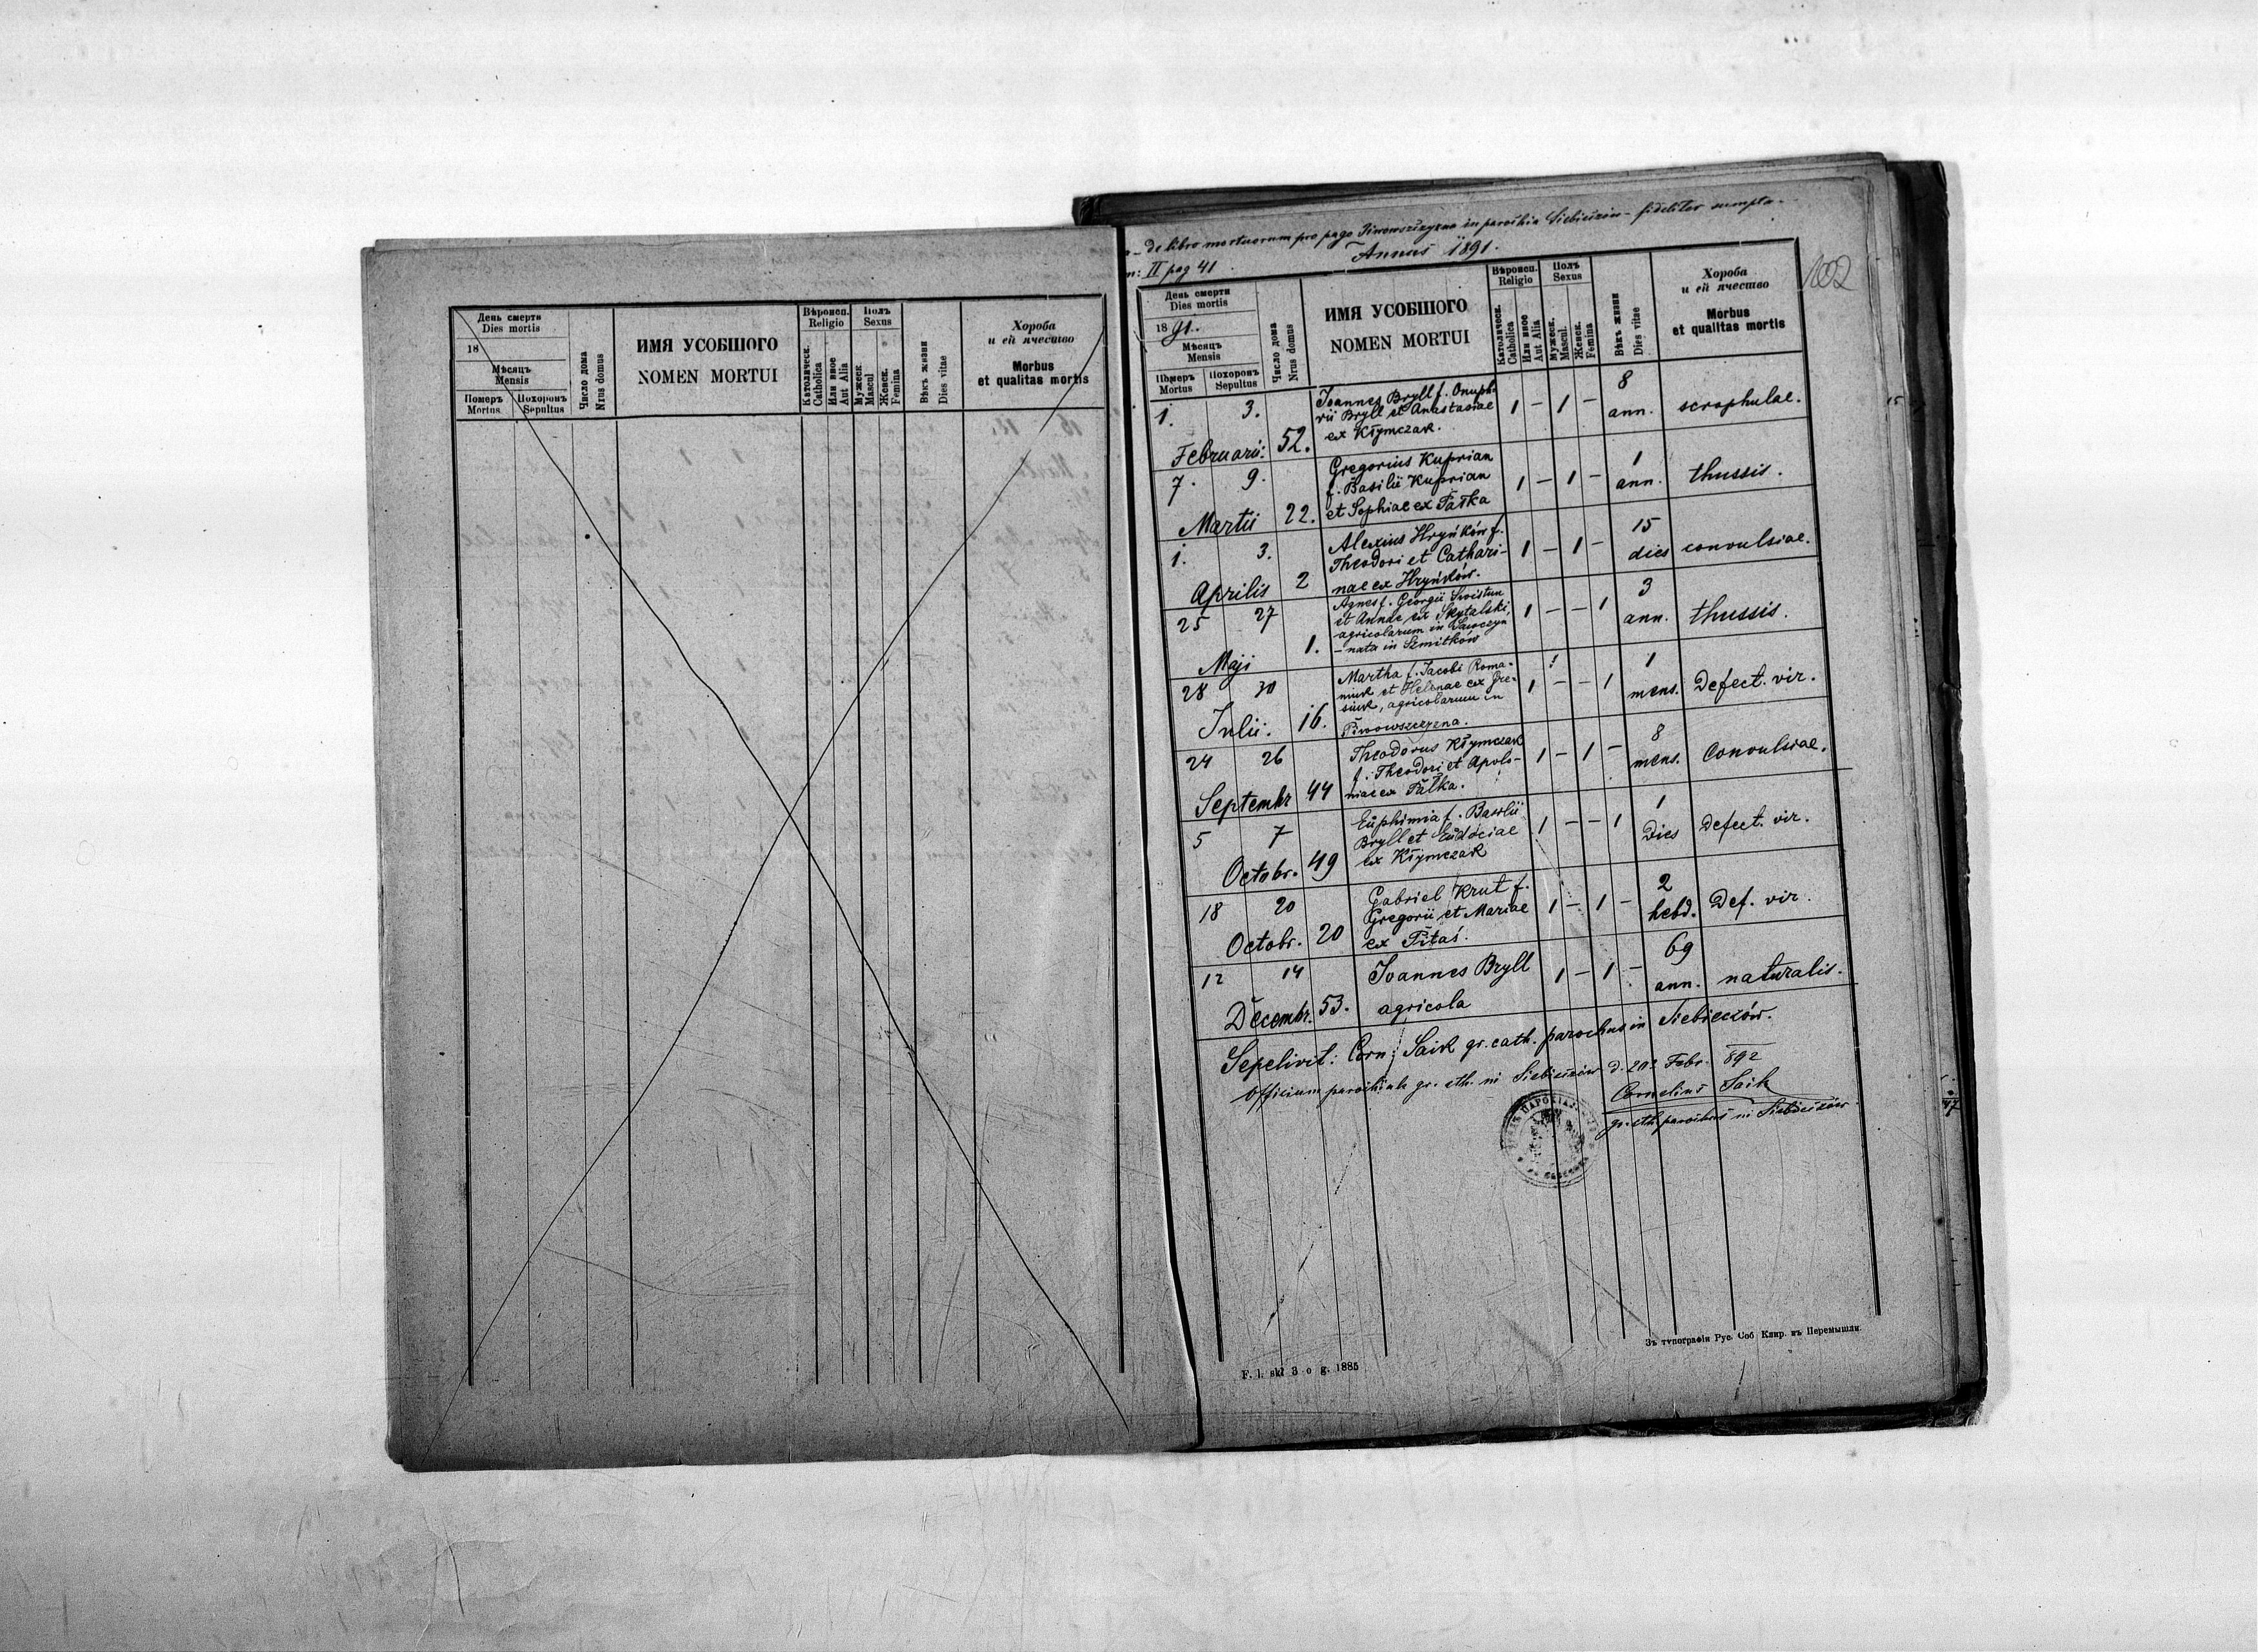 День смерти
Dies mortis
18
Мѣсяцъ
Mensis
Померъ
Mortus
Похоронъ
Sepultus
Число дома
Nrus domus
ИМЯ УСОБШОГО
NOMEN MORTUI
Вѣроисп.
Religio
Католическ.
Catholica
Или иное
Aut Alia
Полъ
Sexus
Мужеск.
Mascul
Женск.
Femina
Вѣкъ жизни
Dies vitae
Хороба
и ей ячество
Morbus
et qualitas mortis
de libro mortuorum pro pago Piwowszczyzna in parochia Siebieczów - fideliter sumpta -
II pag 41
Annus 1891.
102
День смерти
Dies mortis
1891.
Мѣсяцъ
Mensis
Померъ
Mortus
Похоронъ
Sepultus
Число дома
Nrus domus
ИМЯ УСОБШОГО
NOMEN MORTUI
Вѣроисп.
Religio
Католическ.
Catholica
Или иное
Aut Alia
Полъ
Sexus
Мужеск.
Mascul.
Женск.
Femina
Вѣкъ жизни
Dies vitae
Хороба
и ей ячество
Morbus
et qualitas mortis
1. 3. Joannes Bryll f. Onuph-
rii Bryll et Anastasiae
ex Kłymczak.
Februarii: 52.
1 - 1 - 8 ann. scrophulae.
7. 9. Gregorius Kuprian
f. Basilii Kuprian
et Sophiae ex Pałka
Martii 22.
1 - 1 - 1 ann. thussis.
1. 3. Alexius Hryńków f.
Theodori et Cathari-
nae ex Hryńków.
Aprilis 2
1 - 1 - 15 dies convulsiae.
25 27 Agnes f. Georgii Swistun
et Annae ex Skytalski,
agricolarum in
- nata in Szmitków
Maji 1.
1 - - 1 3 ann. thussis.
28 30 Martha f. Jacobi Roma-
niuk et Helenae ex Gre-
siuk, agricolarum in
Piwowszczyzna.
Julii. 16.
1 - - 1 1 mens. Defect. vir.
24 26 Theodorus Kłymczak
f. Theodori et Apolo-
niae ex Pałka.
Septembr 44
1 - 1 - 8 mens. Convulsiae.
5 7 Euphimia f. Basilii
Bryll et Eudociae
ex Kłymczak
Octobr. 49
1 - - 1 1 Dies Defect. vir.
18 20 Gabriel Krut f.
Gregorii et Mariae
ex Pitaś.
Octobr. 20
1 - 1 - 2 hebd. Def. vir.
12 14 Joannes Bryll
agricola
Decembr. 53.
1 - 1 - 69 ann. naturalis.
Sepelivit: Corn: Saik gr. cath. parochus in Siebieczów.
Officium parochiale gr. cth. in Siebieczów d. 20. Febr. 892
Cornelius Saik
gr. cth. parochus in Siebieczów
F. l. skł 3 o g. 1885
Зъ типографіи Рус. Соб Клир. въ Перемышли.
47